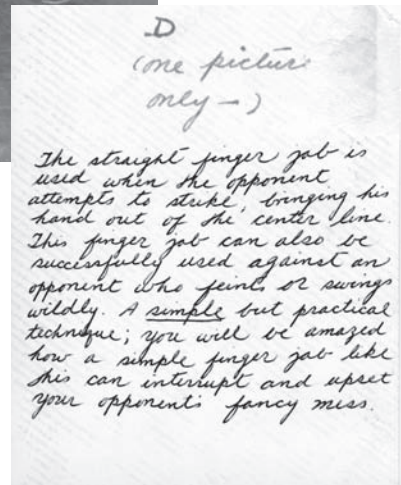 D
(one picture
only –)
The straight finger jab is
used when the opponent
attempts to strike, bringing his
hand out of the center line.
This finger jab can also be
successfully used against an
opponent who feints or swings
wildly. A simple but practical
technique; you will be amazed
how a simple finger jab like
this can interrupt and upset
your opponent's fancy mess.